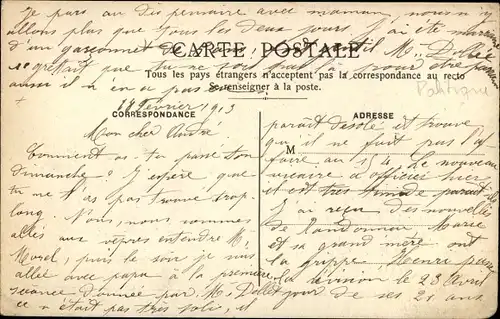 Je pars au dispensaire avec maman, nous n'y
allons plus que tous les deux jours. J'ai été marraine
d'un garçonnet
CARTE POSTALE
M. Dollet
regrettait que tu ne sois pas là pour être parrain
aussi il n'en a pas
Tous les pays étrangers n'acceptent pas la correspondance au recto
Se renseigner à la poste.
CORRESPONDANCE
ADRESSE
M
Février 1913
Mon cher André.
Comment as-tu passé ton
dimanche? J'espère que
tu ne t'es pas trouvé trop
long. Nous, nous sommes
allés aux vêpres entendre M.
Morel, puis le soir je suis
allée avec papa à la première
séance donnée par M. Dollet
ce n'était pas très joli, il
paraît désolé et trouve
qu'il ne fait pas l'
affaire au 154. Le nouveau
vicaire a officié hier
et est très timide paraît-il
J'ai reçu des nouvelles
de Randonnai Marie
et sa grand'mère ont
la grippe. Henri passe
la révision le 23 Avril
jour de ses 21 ans